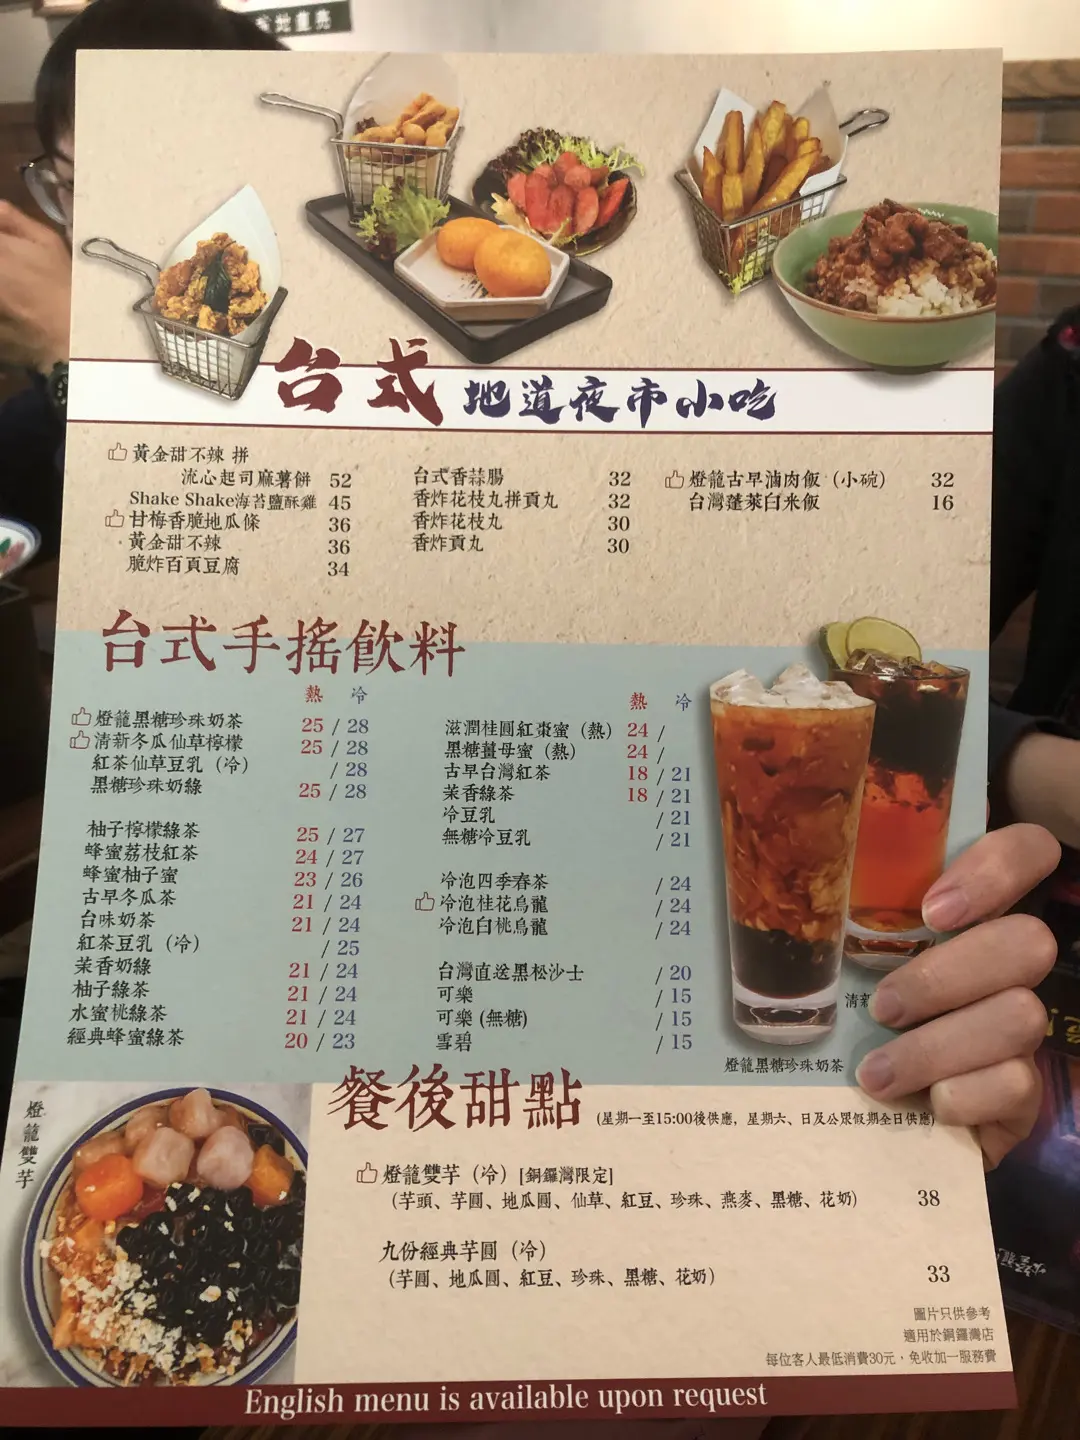 台式 地道夜市小吃
黃金甜不辣 拼
流心起司麻薯餅 52
Shake Shake海苔鹽酥雞 45
甘梅香脆地瓜條 36
黃金甜不辣 36
脆炸百頁豆腐 34
台式香蒜腸 32
香炸花枝丸拼貢丸 32
香炸花枝丸 30
香炸貢丸 30
燈籠古早滷肉飯（小碗） 32
台灣蓬萊白米飯 16
台式手搖飲料
熱 冷
燈籠黑糖珍珠奶茶 25 / 28
清新冬瓜仙草檸檬 25 / 28
紅茶仙草豆乳（冷） / 28
黑糖珍珠奶綠 25 / 28
柚子檸檬綠茶 25 / 27
蜂蜜荔枝紅茶 24 / 27
蜂蜜柚子蜜 23 / 26
古早冬瓜茶 21 / 24
台味奶茶 21 / 24
紅茶豆乳（冷） / 25
茉香奶綠 21 / 24
柚子綠茶 21 / 24
水蜜桃綠茶 21 / 24
經典蜂蜜綠茶 20 / 23
熱 冷
滋潤桂圓紅棗蜜（熱） 24 /
黑糖薑母蜜（熱） 24 /
古早台灣紅茶 18 / 21
茉香綠茶 18 / 21
冷豆乳 / 21
無糖冷豆乳 / 21
冷泡四季春茶 / 24
冷泡桂花烏龍 / 24
冷泡白桃烏龍 / 24
台灣直送黑松沙士 / 20
可樂 / 15
可樂 (無糖) / 15
雪碧 / 15
清新
燈籠黑糖珍珠奶茶
燈籠雙芋
餐後甜點 (星期一至15:00後供應，星期六、日及公眾假期全日供應)
燈籠雙芋（冷）[銅鑼灣限定]
（芋頭、芋圓、地瓜圓、仙草、紅豆、珍珠、燕麥、黑糖、花奶） 38
九份經典芋圓（冷）
（芋圓、地瓜圓、紅豆、珍珠、黑糖、花奶） 33
圖片只供參考
適用於銅鑼灣店
每位客人最低消費30元，免收加一服務費
English menu is available upon request